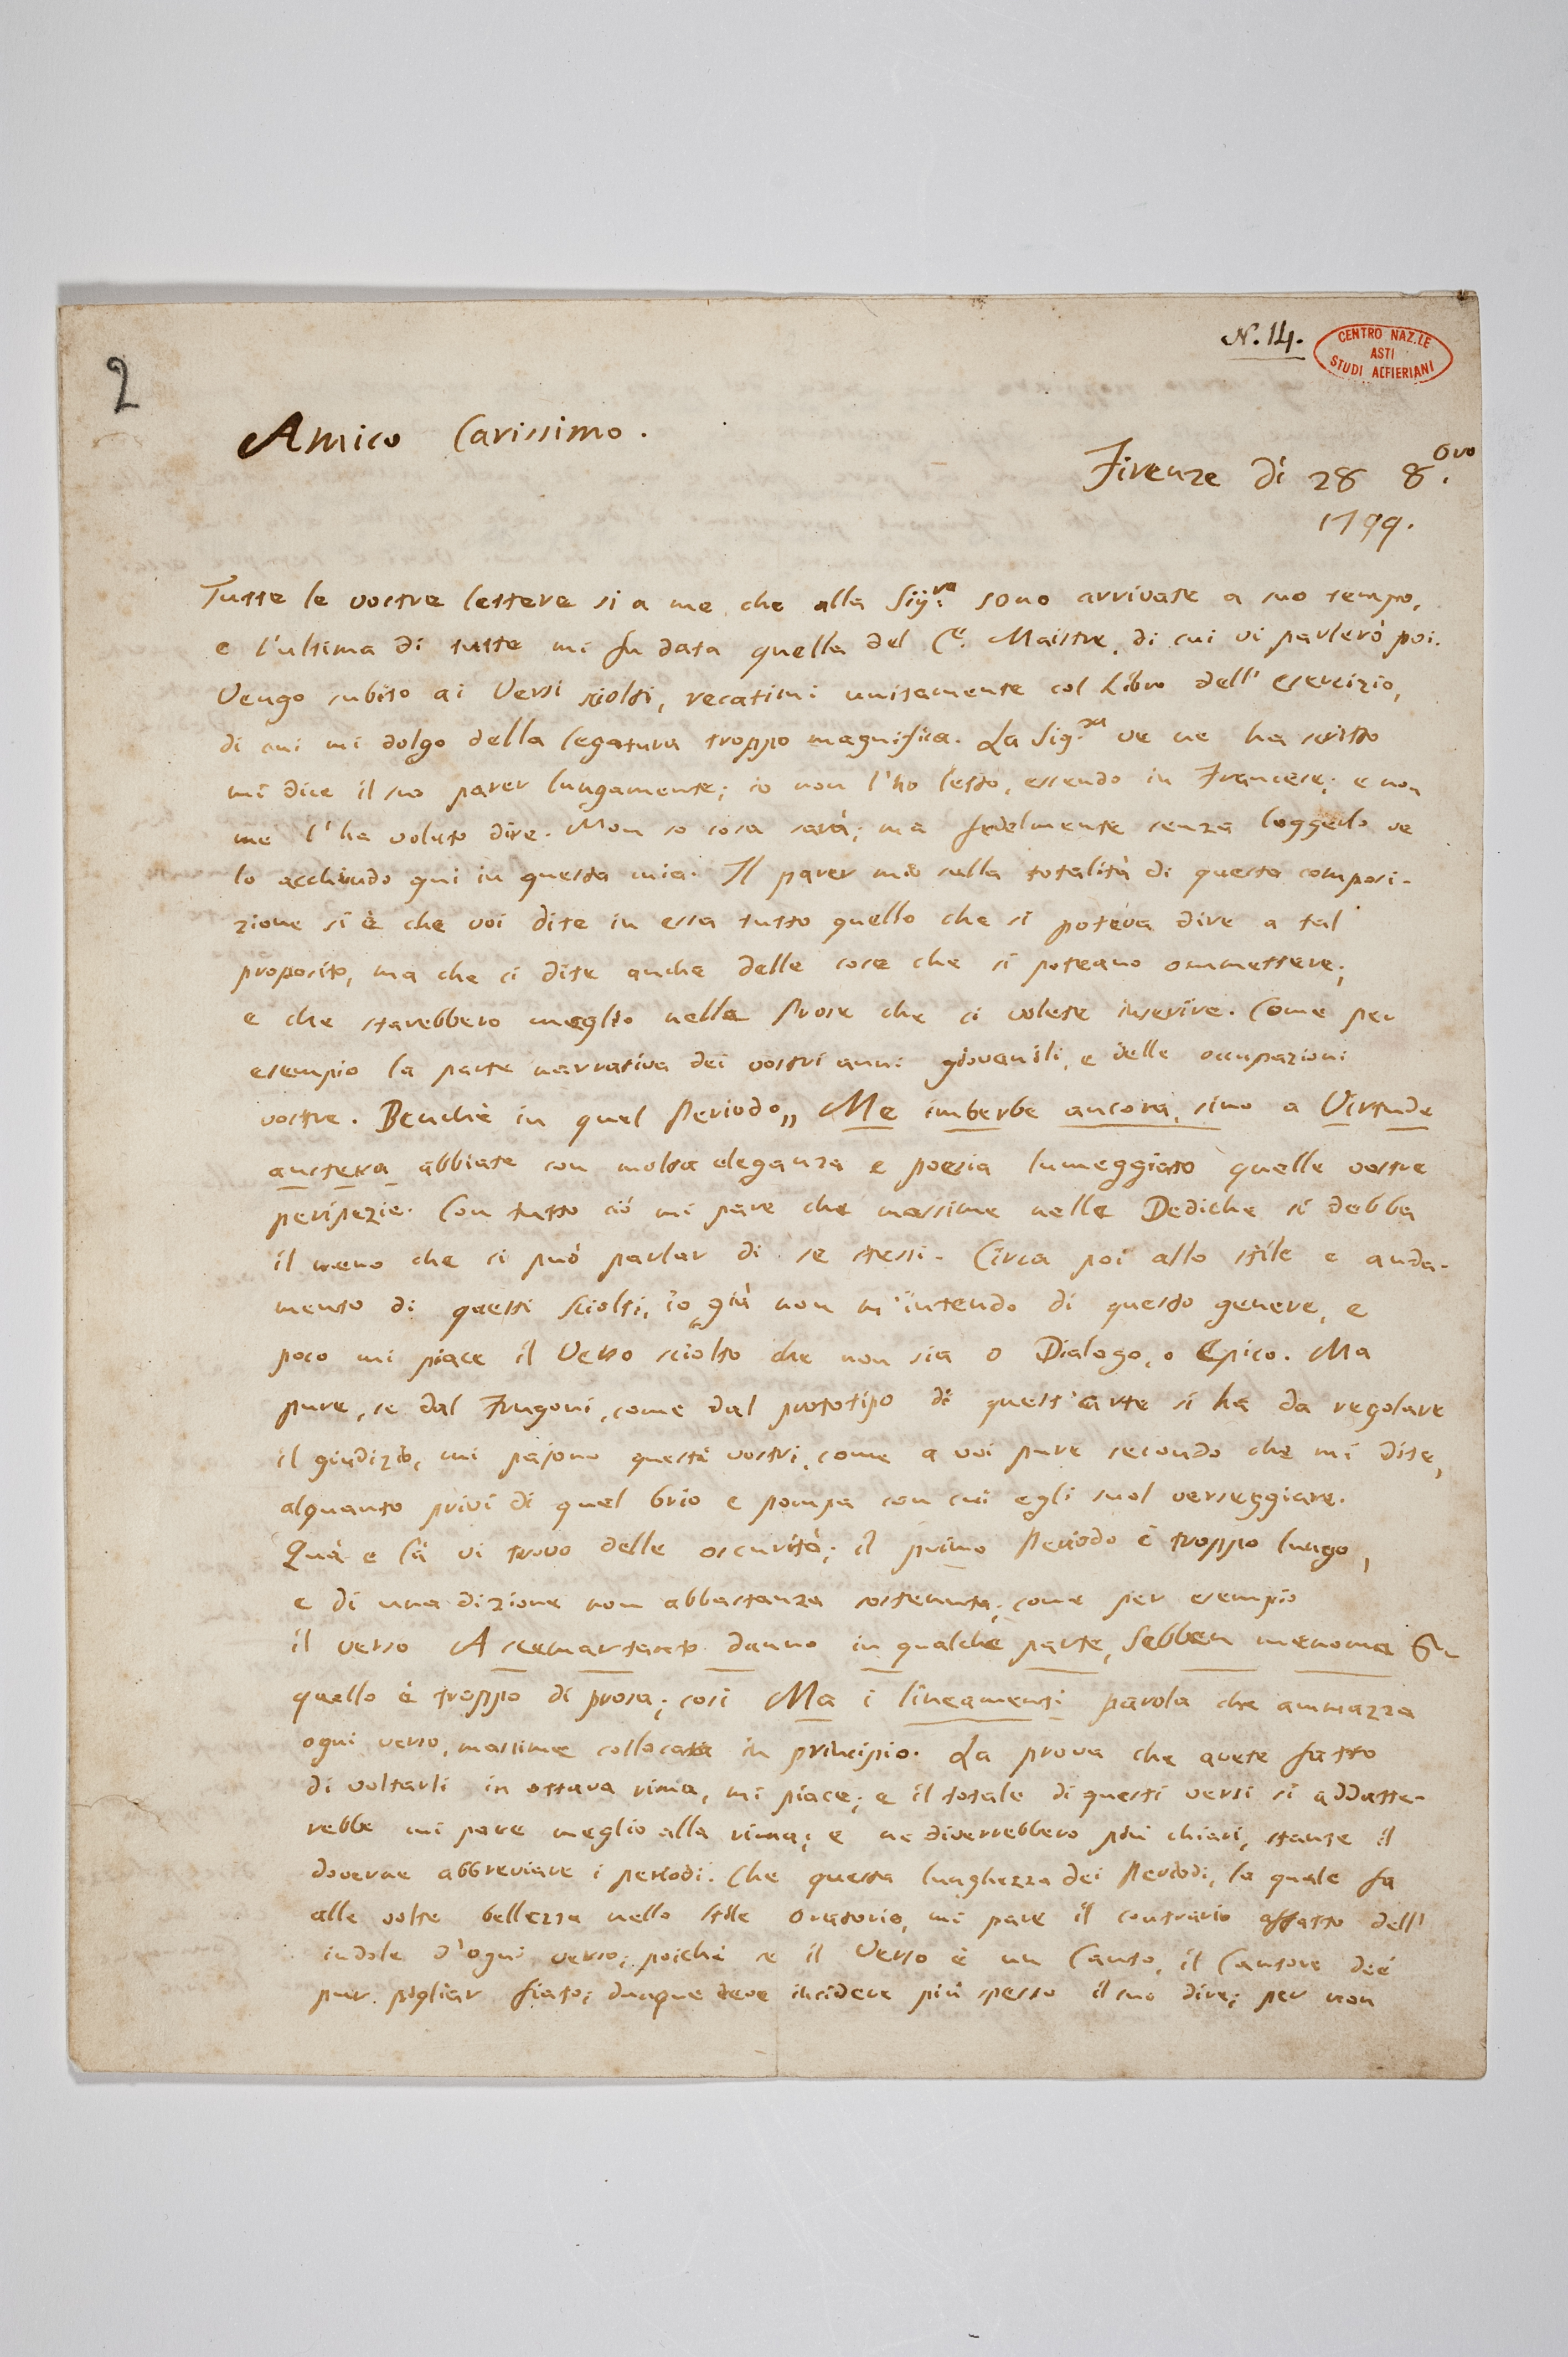 N. 14.
CENTRO NAZ.LE
ASTI
STUDI ALFIERIANI
2
Amico Carissimo.
Firenze dì 28 8.bre
1799.
Tutte le vostre lettere si a me che alla Sig.ra sono arrivate a suo tempo,
e l'ultima di tutte mi fu data quella del C.e Maistre, di cui vi parlerò poi.
Vengo subito ai Versi sciolti, recatimi unitamente col Libro dell' esercizio,
di cui mi dolgo della legatura troppo magnifica. La Sig.ra ve ne ha scritto
mi dice il suo parer lungamente; io non l'ho letto, essendo in Francese; e non
me l'ha voluto dire. Non so cosa sarà; ma fedelmente senza leggerlo ve
lo acchiudo qui in questa mia. Il parer mio sulla totalità di questa composi-
zione si è che voi dite in essa tutto quello che si poteva dire a tal
proposito, ma che ci dite anche delle cose che si poteano ommettere;
e che starebbero meglio nelle Prose che ci volete inserire. Come per
esempio la parte narrativa dei vostri anni giovanili, e delle occupazioni
vostre. Benchè in quel Periodo,, Me imberbe ancora, sino a Virtude
austera abbiate con molta eleganza e poesia lumeggiato quelle vostre
peripezie. Con tutto ciò mi pare che massime nelle Dediche si debba
il meno che si può parlar di se stessi. Circa poi allo stile e anda-
mento di questi Sciolti, io già non m'intendo di questo genere, e
poco mi piace il Verso sciolto che non sia o Dialogo, o Epico. Ma
pure, se dal Frugoni, come dal prototipo di quest'arte si ha da regolare
il giudizio, mi pajono questi vostri, come a voi pure secondo che mi dite,
alquanto privi di quel brio e pompa con cui egli suol verseggiare.
Quà e là vi trovo delle oscurità; il primo Periodo è troppo lungo,
e di una dizione non abbastanza sostenuta; come per esempio
il verso A scemar tanto danno in qualche parte, Sebben menoma
quello è troppo di prosa; così Ma i lineamenti parola che ammazza
ogni verso, massime collocata in principio. La prova che avete fatto
di voltarli in ottava rima, mi piace; e il totale di questi versi si addatte-
rebbe mi pare meglio alla rima; e ne diverrebbero più chiari, stante il
doverne abbreviare i periodi. Che questa lunghezza dei Periodi, la quale fa
alle volte bellezza nello stile oratorio, mi pare il contrario affatto dell'
indole d'ogni verso; poichè se il Verso è un Canto, il Cantore deè
pur pigliar fiato; dunque deve incidere più spesso il suo dire; per non